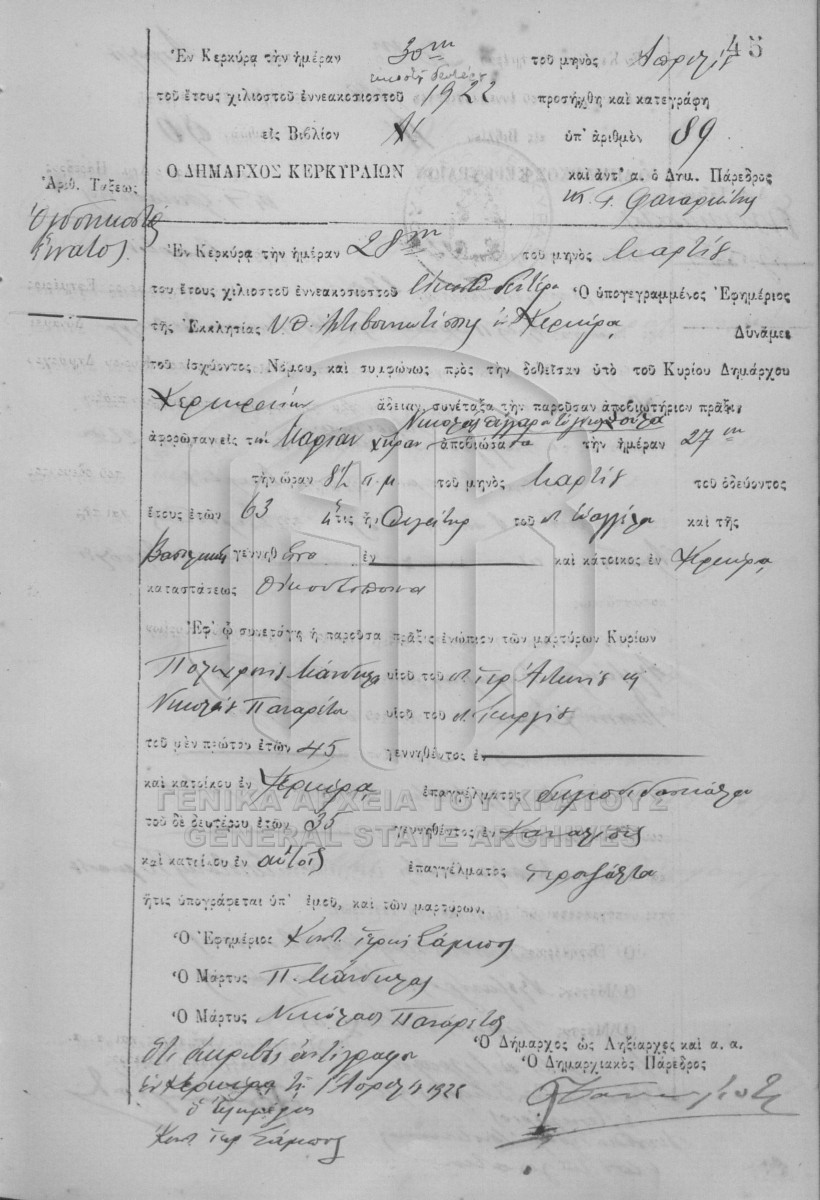 45
Ἐν Κερκύρᾳ τὴν ἡμέραν 30ην τοῦ μηνὸς Ἀπριλίου
εἰκοστοῦ δευτέρου
τοῦ ἔτους χιλιοστοῦ ἐννεακοσιοστοῦ 1922 προσήχθη καὶ κατεγράφη
εἰς Βιβλίον ὑπ' ἀριθμὸν 89
Ο ΔΗΜΑΡΧΟΣ ΚΕΡΚΥΡΑΙΩΝ καὶ ἀντ' α. ὁ Δημ. Πάρεδρος
Ἀριθ. Τάξεως
Ὀγδοηκοστὸς
ἔννατος
Ἐν Κερκύρᾳ τὴν ἡμέραν 28ην τοῦ μηνὸς Μαρτίου
του ἔτους χιλιοστοῦ ἐννεακοσιοστοῦ εἰκοστοῦ δευτέρου Ὁ ὑπογεγραμμένος Ἐφημέριος
τῆς Ἐκκλησίας Υ.Θ. ἐν Κερκύρᾳ Δυνάμει
τοῦ ἰσχύοντος Νόμου, καὶ συμφώνως πρὸς τὴν δοθεῖσαν ὑπὸ τοῦ Κυρίου Δημάρχου
Κερκυραίων ἄδειαν, συνέταξα τὴν παροῦσαν ἀποβιωτήριον πρᾶξιν
Νικολάου
ἀφορῶσαν εἰς τὴν Μαρίαν χήραν ἀποβιώσασα τὴν ἡμέραν 27ην
τὴν ὥραν 8½ π.μ. τοῦ μηνὸς Μαρτίου τοῦ ὁδεύοντος
ἔτους ἐτῶν 63 ἥτις ἦ θυγάτηρ τοῦ καὶ τῆς
Βασιλικῆς γεννηθ ἐν καὶ κάτοικος ἐν Κερκύρᾳ
καταστάσεως οἰκοδέσποινα
Ἐφ' ᾧ συνετάγη ἡ παροῦσα πρᾶξις ἐνώπιον τῶν μαρτύρων Κυρίων
Πολυχρόνη υἱοῦ τοῦ π. Ἱερ. Ἀντωνίου
Νικολάου Παναρέτου υἱοῦ τοῦ π. Γεωργίου
τοῦ μὲν πρώτου ἐτῶν 45 γεννηθέντος ἐν
καὶ κατοίκου ἐν Κερκύρᾳ ἐπαγγέλματος δημοδιδασκάλου
τοῦ δὲ δευτέρου ἐτῶν 35 γεννηθέντος ἐν
καὶ κατοίκου ἐν αὐτοῖς ἐπαγγέλματος ἱεροψάλτου
ἥτις ὑπογράφεται ὑπ' ἐμοῦ, καὶ τῶν μαρτύρων.
Ὁ Ἐφημέριος Κωνστ. Ἱερεὺς Σάμιος
Ὁ Μάρτυς Π.
Ὁ Μάρτυς Νικόλαος Πανάρετος
Ὅτι ἀκριβὲς ἀντίγραφον
Ὁ Δήμαρχος ὡς Ληξίαρχος καὶ α. α.
ἐν Κερκύρᾳ τῇ 1 Ἀπριλίου 1922
Ὁ Δημαρχιακὸς Πάρεδρος
ὁ Ἐφημέριος
Κωνστ. Ἱερ. Σάμιος
ΓΕΝΙΚΑ ΑΡΧΕΙΑ ΤΟΥ ΚΡΑΤΟΥΣ
GENERAL STATE ARCHIVES